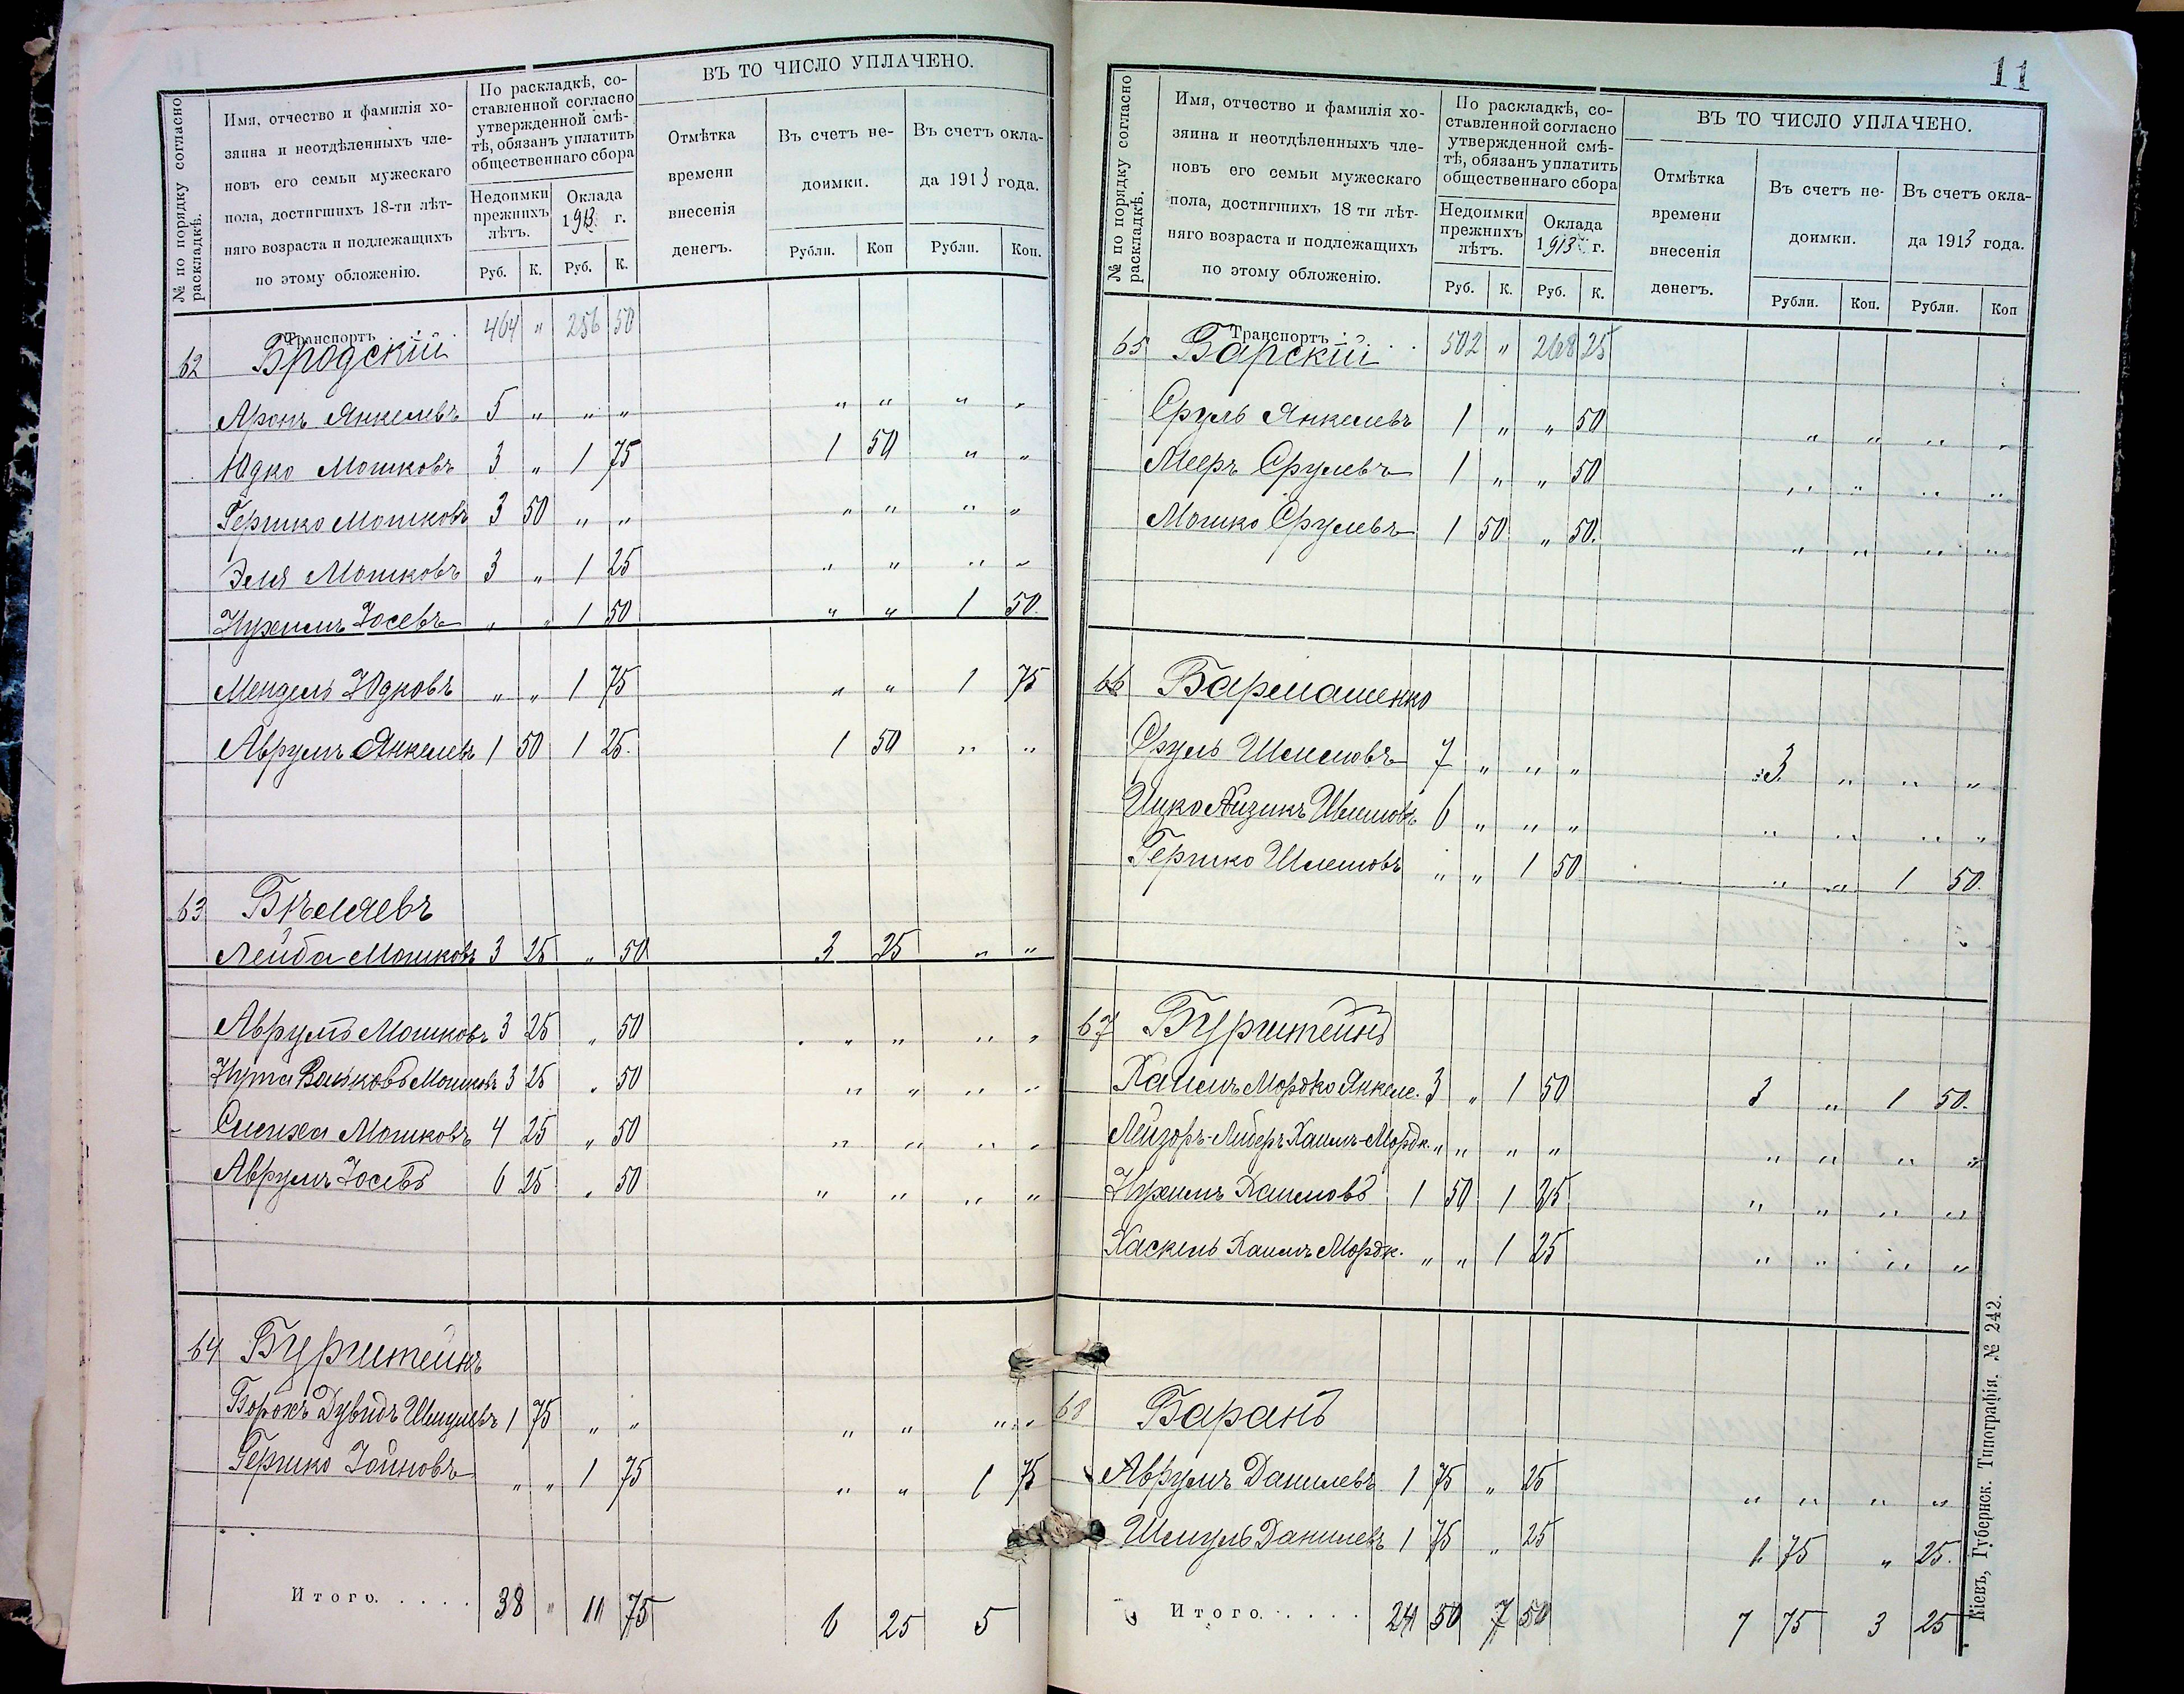 № по порядку согласно раскладкѣ.
Имя, отчество и фамилія хо-
зяина и неотдѣленныхъ чле-
новъ его семьи мужескаго
пола, достигшихъ 18-ти лѣт-
няго возраста и подлежащихъ
по этому обложенію.
По раскладкѣ, со-
ставленной согласно
утвержденной смѣ-
тѣ, обязанъ уплатить
общественнаго сбора
Недоимки прежнихъ лѣтъ.
Оклада 1913 г.
Руб. К. Руб. К.
ВЪ ТО ЧИСЛО УПЛАЧЕНО.
Отмѣтка времени внесенія денегъ.
Въ счетъ не-
доимки.
Въ счетъ окла-
да 1913 года.
Рубли. Коп Рубли. Коп.
Транспортъ 464 " 256 50
62 Бродскій
Аронъ Янкелевъ 5 " " " " " " "
Юдко Мошковъ 3 " 1 75 1 50 " "
Гершко Мошковъ 3 50 " " " " " "
Эля Мошковъ 3 " 1 25 " " " "
Нухимъ Іосевъ " " 1 50 " " 1 50.
Мендель Юдковъ " " 1 75 " " 1 75
Аврумъ Янкелевъ 1 50 1 25. 1 50 " "
63 Бѣляевъ
Лейба Мошковъ 3 25 " 50 3 25 " "
Аврумъ Мошковъ 3 25 " 50 " " " "
Нута Вольковъ Мошковъ 3 25 " 50 " " " "
Симха Мошковъ 4 25 " 50 " " " "
Аврумъ Іосевъ 6 25 " 50 " " " "
64 Бурштейнъ
Борохъ Дувидъ Шмулевъ 1 75 " " " " " "
Гершко Іойновъ " " 1 75 " " 1 75
Итого. . . . . 38 " 11 75 6 25 5
11
№ по порядку согласно раскладкѣ.
Имя, отчество и фамилія хо-
зяина и неотдѣленныхъ чле-
новъ его семьи мужескаго
пола, достигшихъ 18 ти лѣт-
няго возраста и подлежащихъ
по этому обложенію.
По раскладкѣ, со-
ставленной согласно
утвержденной смѣ-
тѣ, обязанъ уплатить
общественнаго сбора
Недоимки прежнихъ лѣтъ.
Оклада 1913 г.
Руб. К. Руб. К.
ВЪ ТО ЧИСЛО УПЛАЧЕНО.
Отмѣтка времени внесенія денегъ.
Въ счетъ не-
доимки.
Въ счетъ окла-
да 1913 года.
Рубли. Коп. Рубли. Коп
Транспортъ 502 " 268 25
65 Барскій
Сруль Янкелевъ 1 " " 50 " " " "
Мееръ Срулевъ 1 " " 50 " " " "
Мошко Срулевъ 1 50 " 50. " " " "
66 Бармашенко
Сруль Шлемовъ 7 " " " 3 " " "
Ицко Айзикъ Шлемовъ 6 " " " " " " "
Гершко Шлемовъ " " 1 50 " " 1 50.
67 Бурштейнъ
Хаимъ Мордко Янкеле. 3 " 1 50 3 " 1 50.
Лейзоръ-Либеръ Хаимъ-Мордк. " " " " " " " "
Нухимъ Хаимовъ 1 50 1 25 " " " "
Хаскель Хаимъ Мордк. " " 1 25 " " " "
68 Баранъ
Аврумъ Данилевъ 1 75 " 25 " " " "
Шмуль Данилевъ 1 75 " 25 1 75 " 25.
Итого. . . . . 24 50 7 50 7 75 3 25
Кіевъ, Губернск. Типографія. № 242.